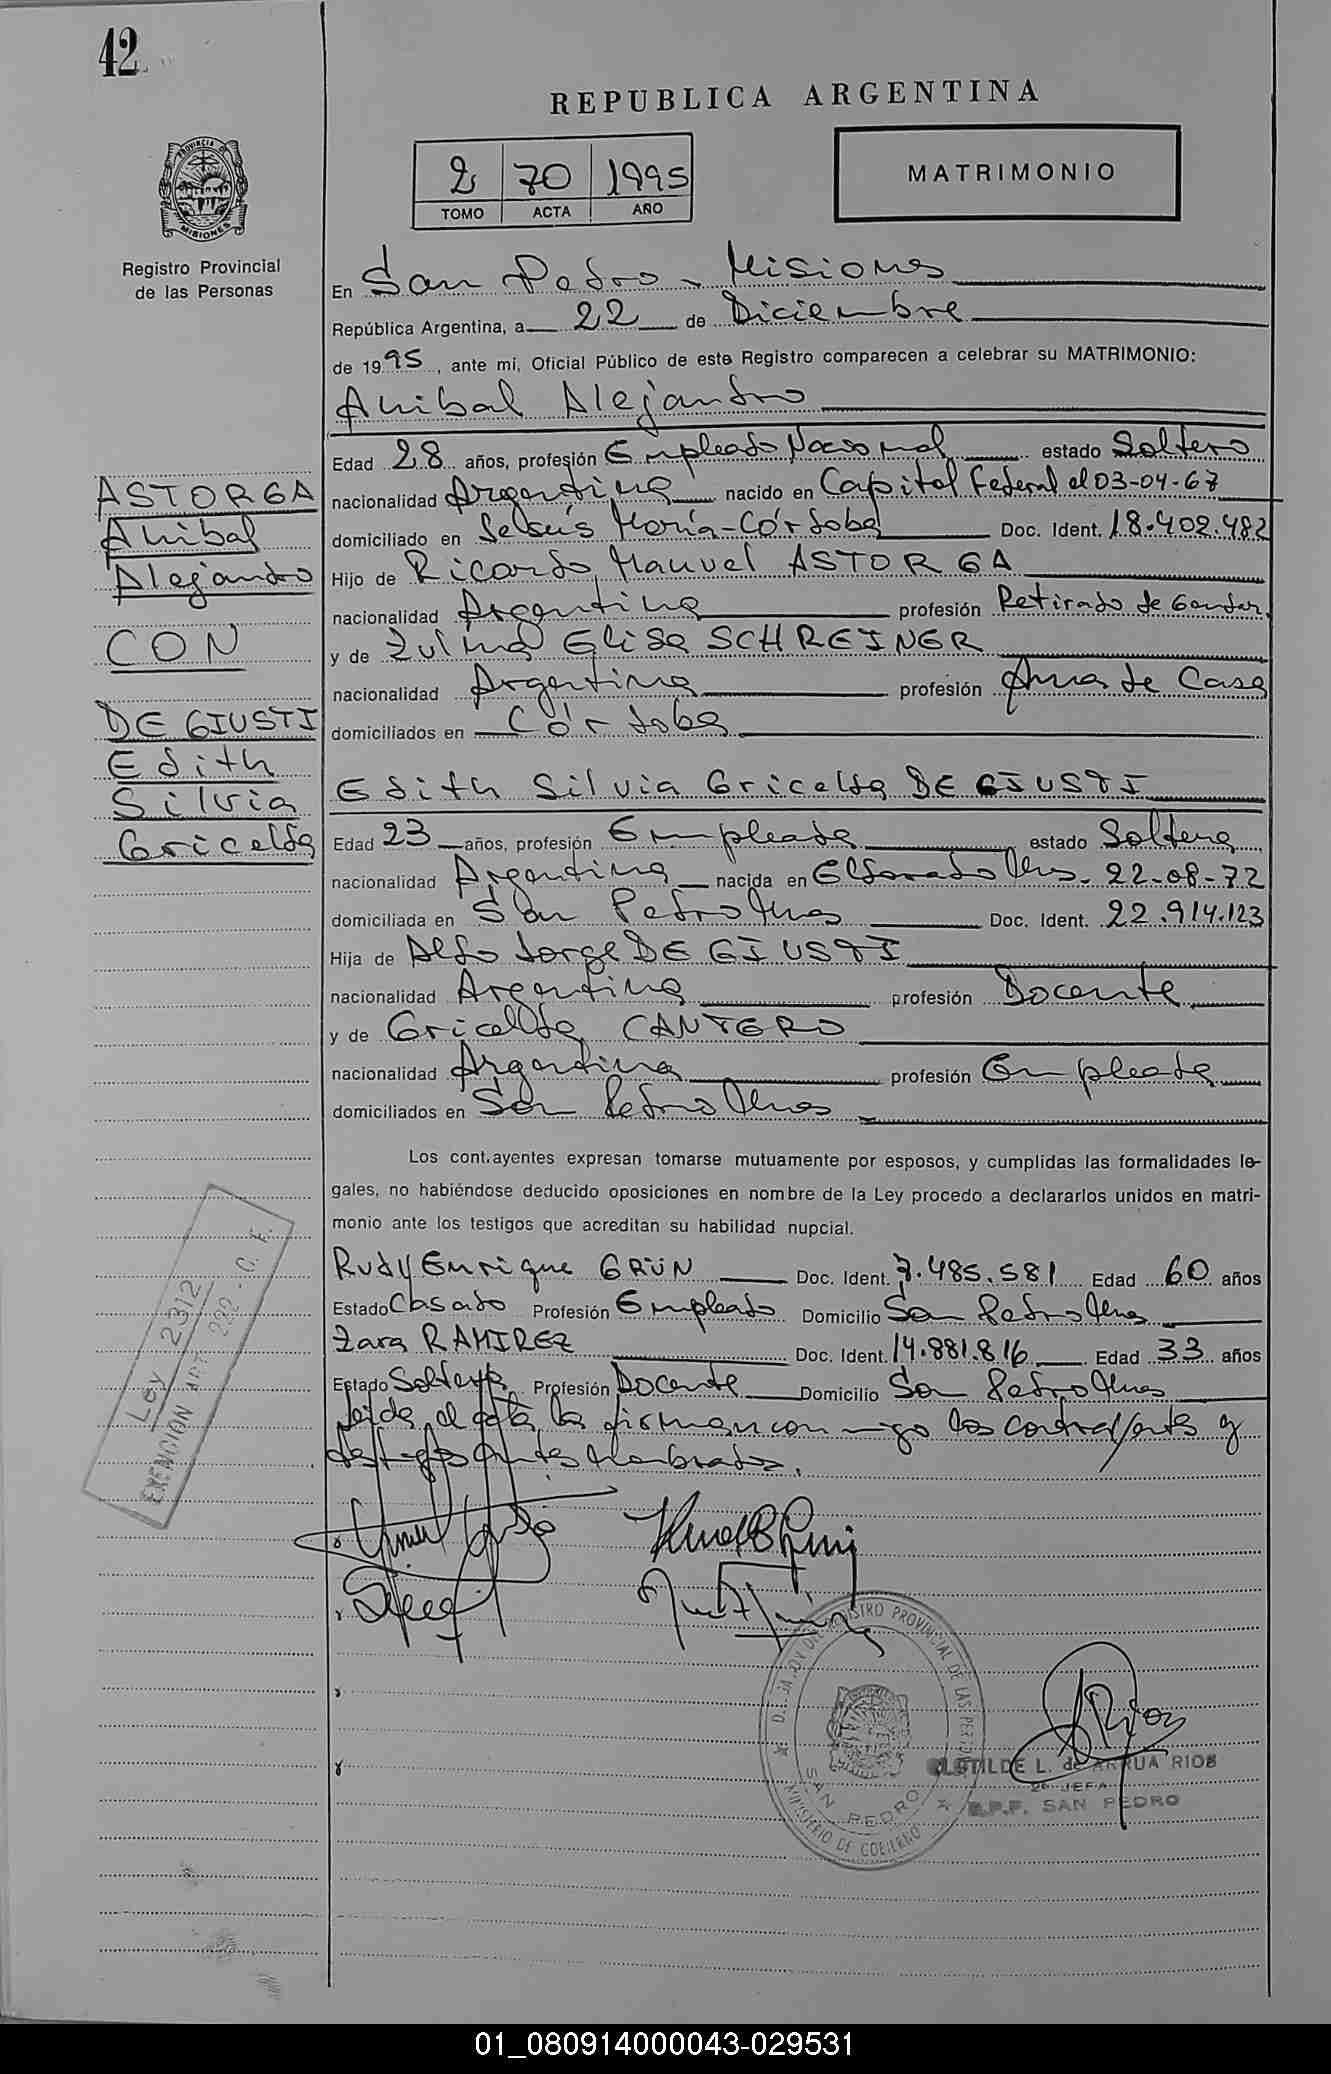 42
REPUBLICA ARGENTINA
2 70 1995
TOMO ACTA AÑO
MATRIMONIO
PROVINCIA DE MISIONES
Registro Provincial
de las Personas
En San Pedro - Misiones
República Argentina, a 22 de Diciembre
de 1995, ante mi, Oficial Público de este Registro comparecen a celebrar su MATRIMONIO:
Anibal Alejandro
Edad 28 años, profesión Empleado Nacional estado Soltero
ASTORGA
Anibal
Alejandro
CON
DE GIUSTI
Edith
Silvia
Gricelda
nacionalidad Argentina nacido en Capital Federal el 03-04-67
domiciliado en Jesús María-Córdoba Doc. Ident. 18.402.482
Hijo de Ricardo Manuel ASTORGA
nacionalidad Argentina profesión Retirado de Gendar.
y de Zulma Elisa SCHREINER
nacionalidad Argentina profesión Ama de Casa
domiciliados en Córdoba
Edith Silvia Gricelda DE GIUSTI
Edad 23 años, profesión Empleada estado Soltera
nacionalidad Argentina nacida en Eldorado Mnes. 22-08-72
domiciliada en San Pedro Mnes Doc. Ident. 22.914.123
Hija de Aldo Jorge DE GIUSTI
nacionalidad Argentina profesión Docente
y de Gricelda CANTERO
nacionalidad Argentina profesión Empleada
domiciliados en San Pedro Mnes
Los contrayentes expresan tomarse mutuamente por esposos, y cumplidas las formalidades le-
gales, no habiéndose deducido oposiciones en nombre de la Ley procedo a declararlos unidos en matri-
monio ante los testigos que acreditan su habilidad nupcial.
Rudy Enrique GRÜN Doc. Ident. 7.485.581 Edad 60 años
Estado Casado Profesión Empleado Domicilio San Pedro Mnes
Zara RAMIREZ Doc. Ident. 14.881.816 Edad 33 años
Estado Soltera Profesión Docente Domicilio San Pedro Mnes
Leida el acta la firman conmigo los contrayentes y
testigos antes nombrados.
Ley 2312
EXENCION ART 222 - C. F.
REGISTRO PROVINCIAL DE LAS PERSONAS
SAN PEDRO
MINISTERIO DE GOBIERNO
CLOTILDE L. de ARRUA RIOS
JEFA
R.P.P. SAN PEDRO
01_080914000043-029531